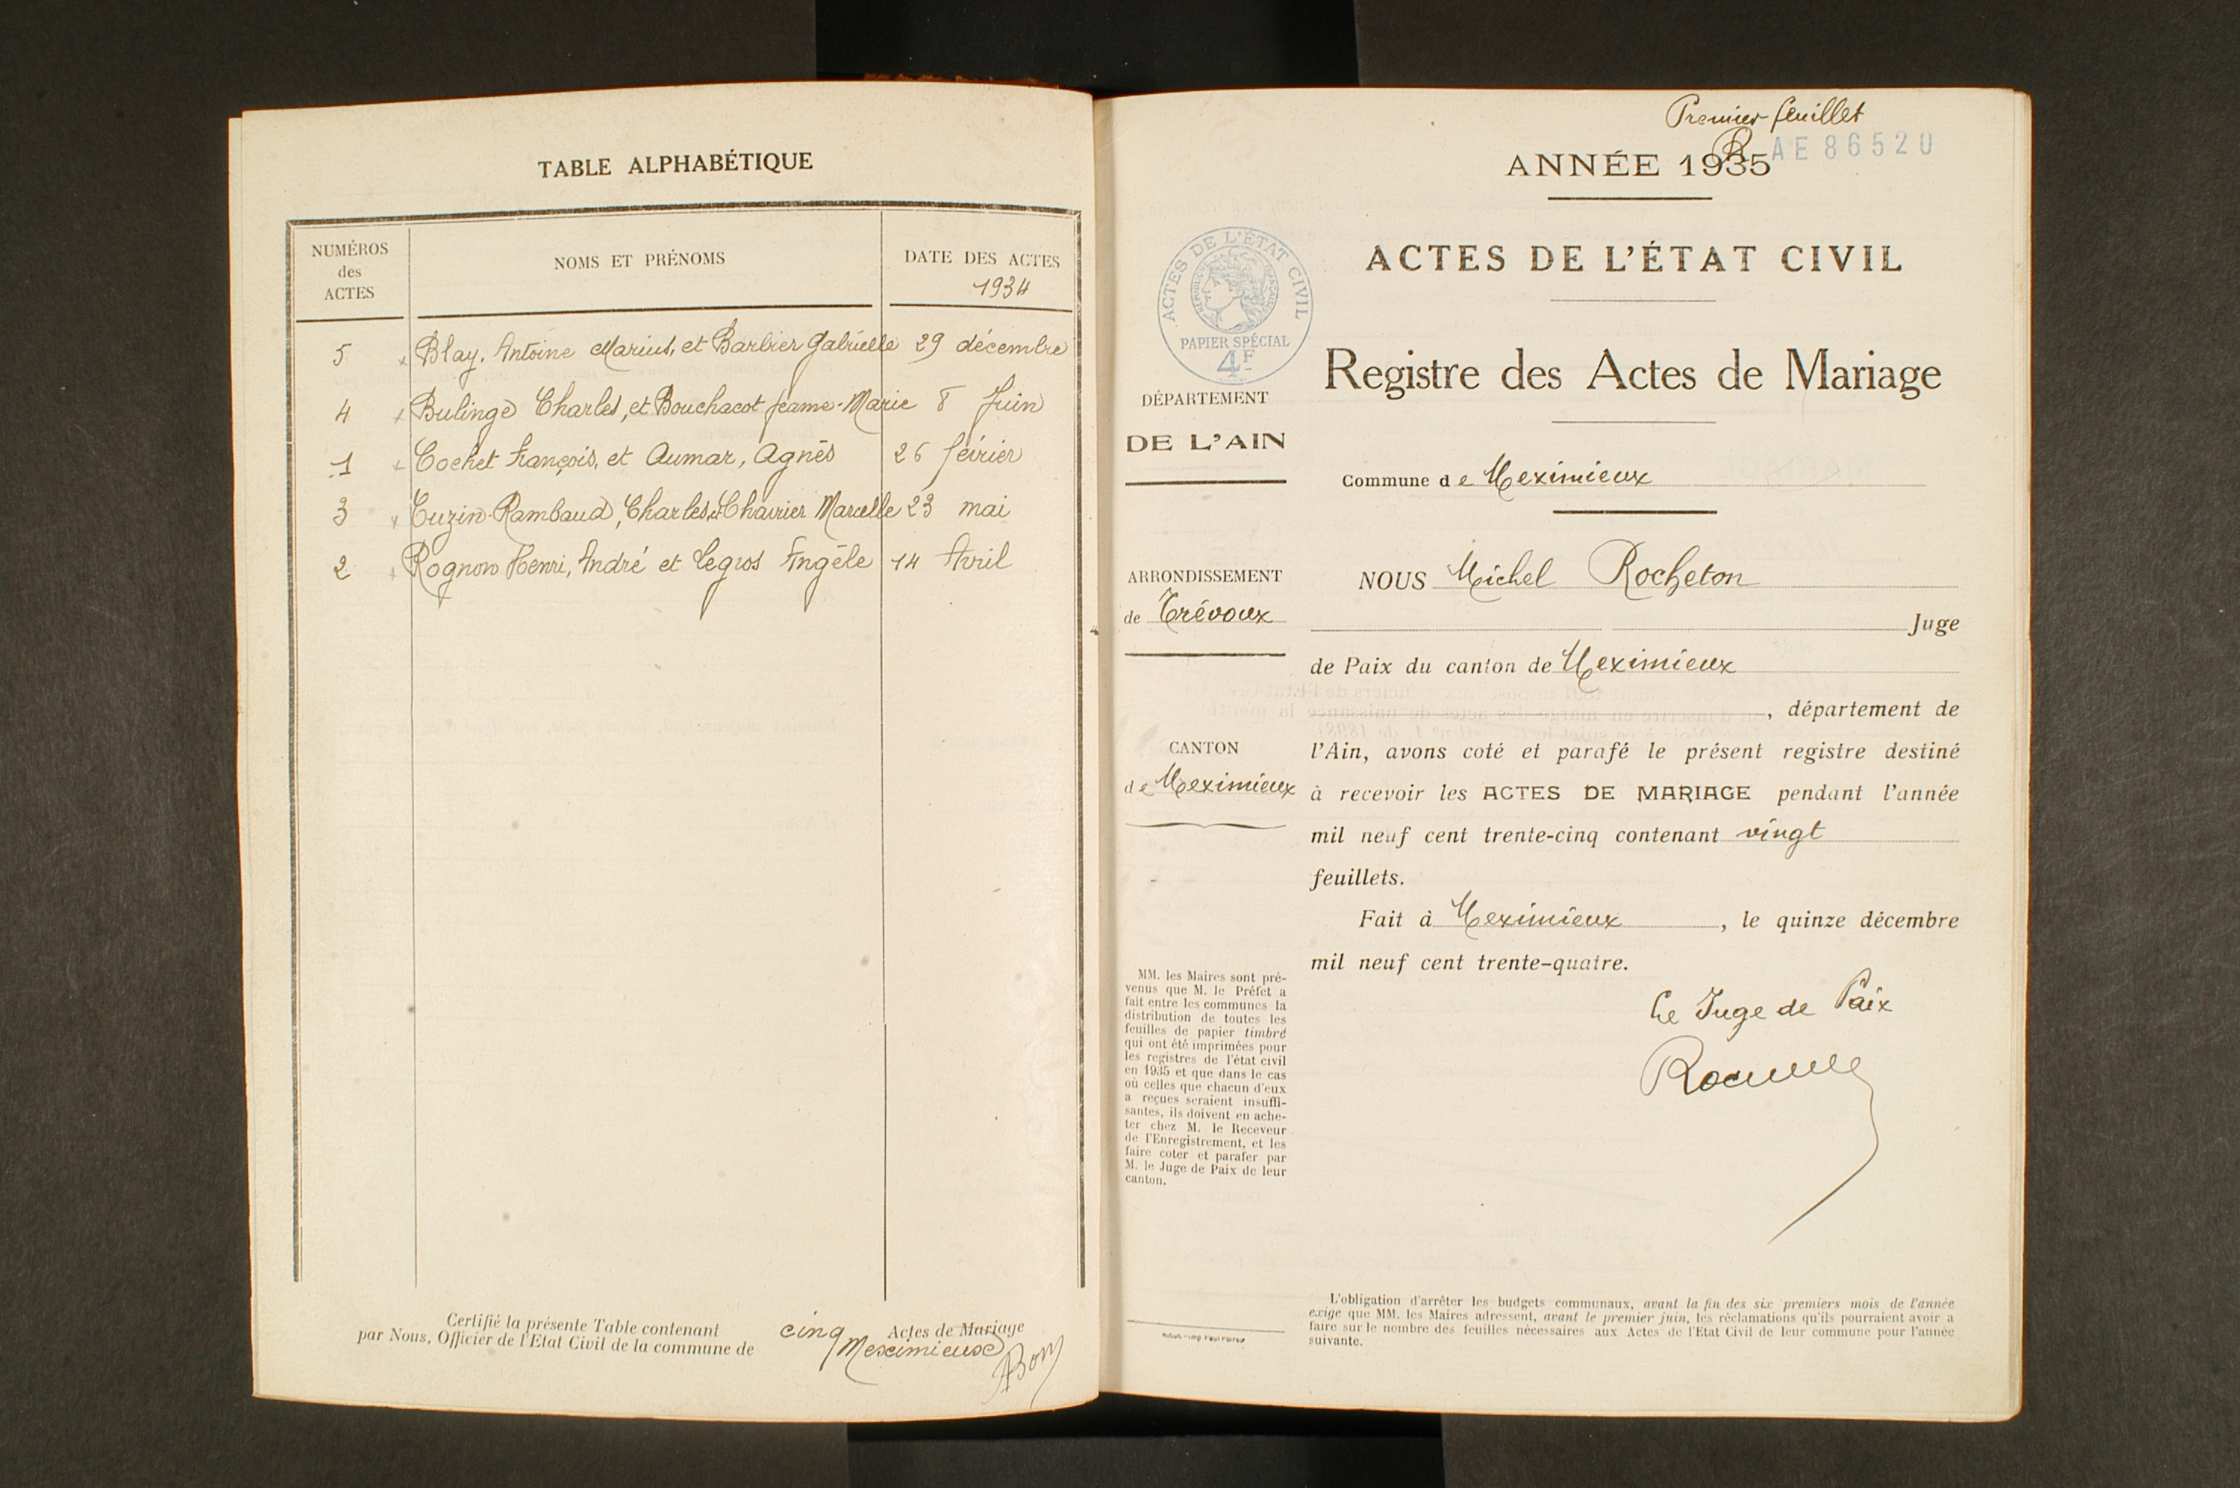 TABLE ALPHABÉTIQUE
NUMÉROS
des
ACTES
NOMS ET PRÉNOMS
DATE DES ACTES
1934
5 Blay, Antoine Marius, et Barbier Gabrielle 29 décembre
4 Bulinge Charles, et Bouchacot Jeanne-Marie 8 Juin
1 Cochet François, et Aumar, Agnès 26 février
3 Cuzin-Rambaud, Charles, et Chavrier Marcelle 23 mai
2 Rognon Henri, André et Legros Angèle 14 Avril
Certifié la présente Table contenant cinq Actes de Mariage
par Nous, Officier de l'Etat Civil de la commune de Meximieux
Premier feuillet
AE 86520
ANNÉE 1935
ACTES DE L'ÉTAT CIVIL
PAPIER SPÉCIAL
4F
ACTES DE L'ÉTAT CIVIL
Registre des Actes de Mariage
DÉPARTEMENT
DE L'AIN
Commune de Meximieux
ARRONDISSEMENT
de Trévoux
CANTON
de Meximieux
MM. les Maires sont pré-
venus que M. le Préfet a
fait entre les communes la
distribution de toutes les
feuilles de papier timbré
qui ont été imprimées pour
les registres de l'état civil
en 1935 et que dans le cas
où celles que chacun d'eux
a reçues seraient insuffi-
santes, ils doivent en ache-
ter chez M. le Receveur
de l'Enregistrement, et les
faire coter et parafer par
M. le Juge de Paix de leur
canton.
NOUS Michel Rocheton
Juge
de Paix du canton de Meximieux
, département de
l'Ain, avons coté et parafé le présent registre destiné
à recevoir les ACTES DE MARIAGE pendant l'année
mil neuf cent trente-cinq contenant vingt
feuillets.
Fait à Meximieux, le quinze décembre
mil neuf cent trente-quatre.
Le Juge de Paix
L'obligation d'arrêter les budgets communaux, avant la fin des six premiers mois de l'année
exige que MM. les Maires adressent, avant le premier juin, les réclamations qu'ils pourraient avoir à
faire sur le nombre des feuilles nécessaires aux Actes de l'Etat Civil de leur commune pour l'année
suivante.